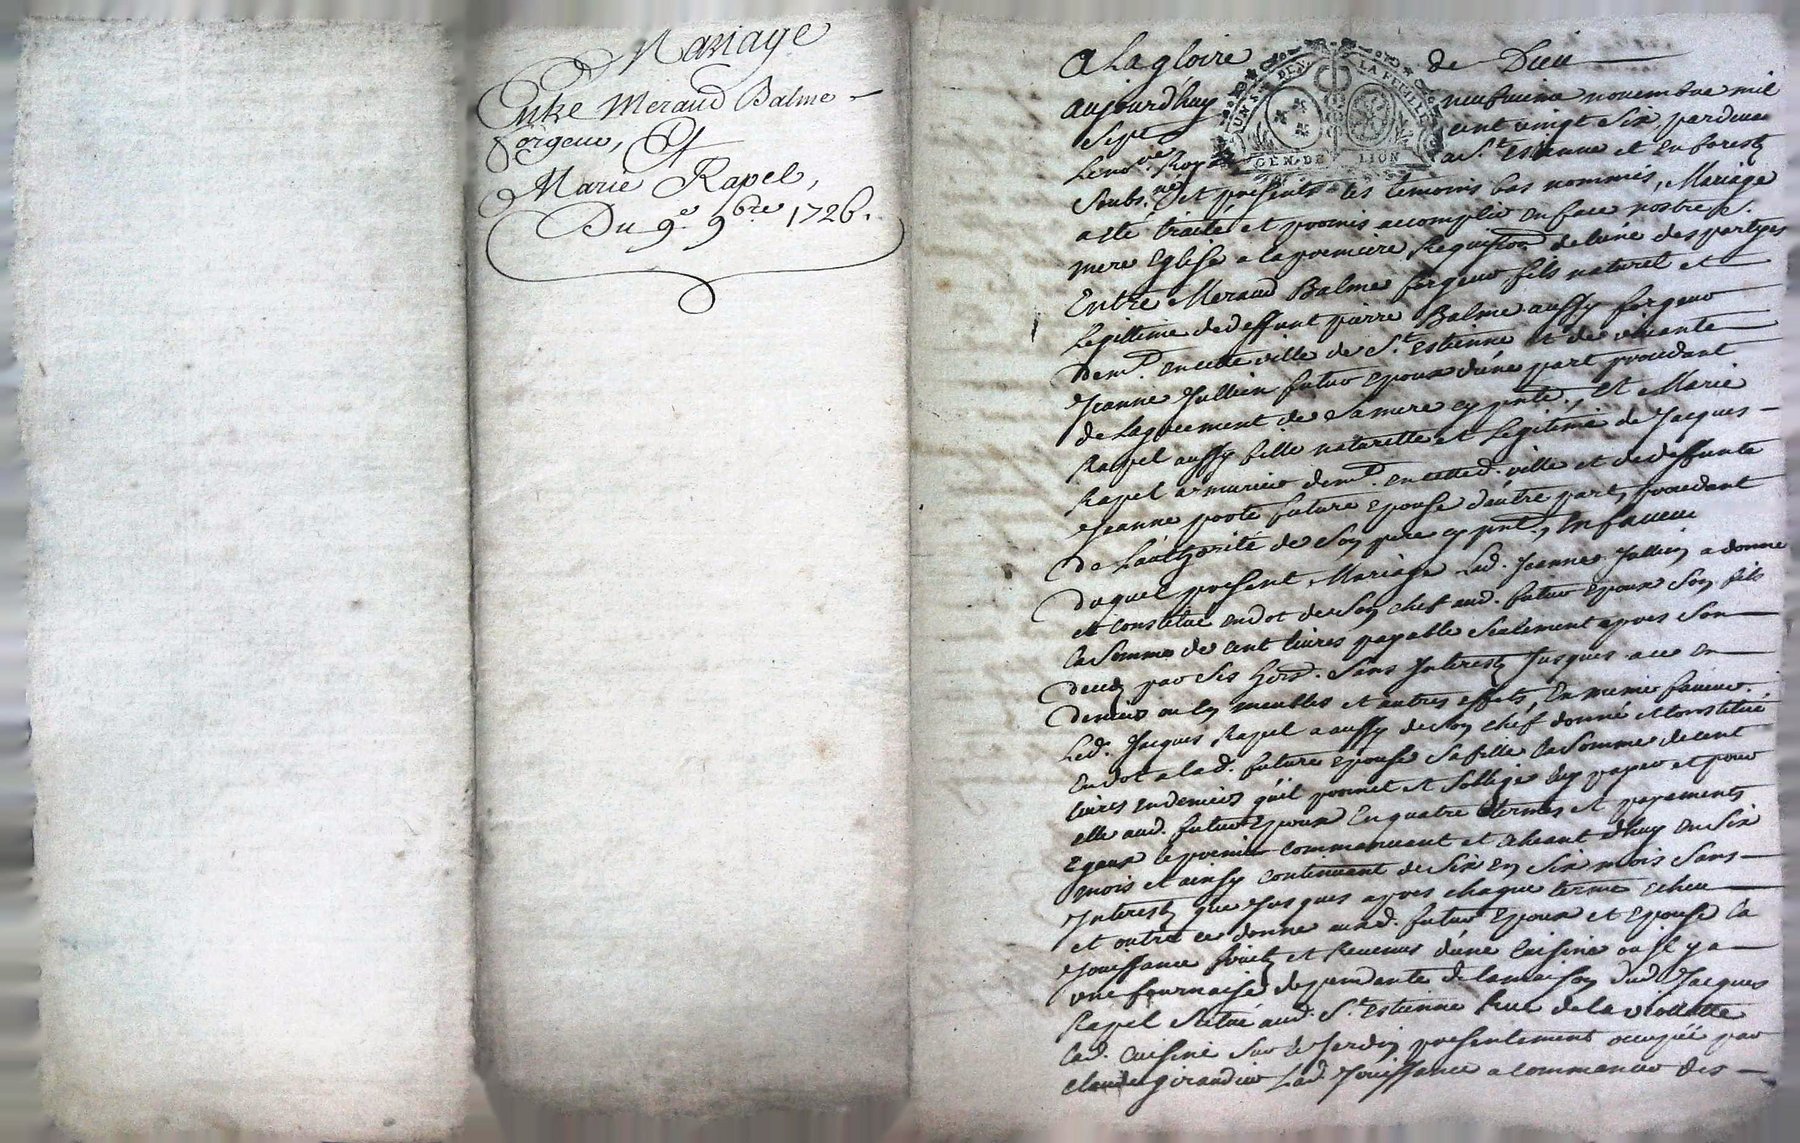 Mariage
Entre Meraud Balme
forgeur, Et
Marie Rapel,
Du 9.e 9bre 1726.
A La gloire de Dieu
aujourd'huy neufvieme novembre mil
Sept cent vingt Six pardevant
Le no.re Roy.al a S.t Estienne et En forestz
Soubs.né Et presents les temoins bas nommés, Mariage
a eté traité et promis accomplir en face nostre S.
mere Eglise a la premiere Requisition de l'une des partyes
Entre Meraud Balme forgeur fils naturel et
Legittime de deffunt pierre Balme aussy forgeur
dem.t en cette ville de S.t Estienne et de vivante
Jeanne Jullien futur Epoux d'une part procedant
de L'agreement de Sa mere cy pnte, Et Marie
Rapel aussy fille naturelle et Legitime de Jacques
Rapel armurier dem.t en cette d. ville et de deffunte
Jeanne poote future epouse d'autre part, procedant
de L'authorité de Son pere cy pnt, En faveur
duquel present Mariage Lad. Jeanne Jullien a donne
et constitué en dot de Son chef aud. futur Epoux Son fils
la Somme de cent livres payable Seulement apres Son
deces par Ses hers. Sans Interestz Jusques a ce en
deniers ou En meubles et autres effets, En meme faveur
Led. Jacques Rapel a aussy de Son chef donné et Constitué
En dot a lad. future epouse Sa fille la Somme de cent
livres en deniers qu'il promet et S'oblige luy payer et pour
elle aud. futur Epoux En quatre termes et payements
Egaux le premier commencant et Echeant d'huy en Six
mois et ainsy continuant de Six En Six mois Sans
Interestz que Jusques apres chaque terme echeu
et outre ce donne aud. futur Epoux et Epouse la
Jouissance fruitz et Revenus d'une Cuisine ou il y a
une fournaise dependante de la maison dud. Jacques
Rapel Située aud. S.t Estienne Rue de la violette
lad. cuisine Sur le Jardin presentement occupée par
claude girardier Lad. Jouissance a commancer des
GEN. DE LION